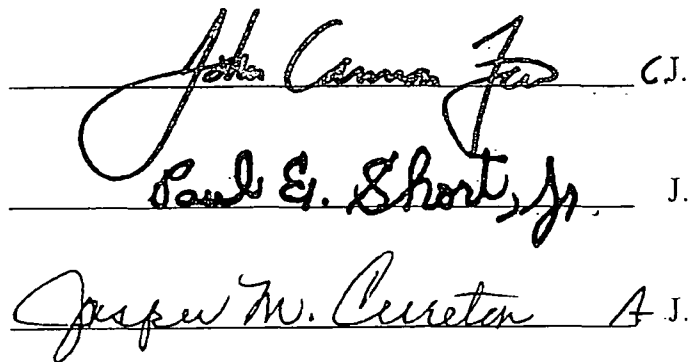 John Cannon Few C.J.
Paul E. Short, Jr. J.
Jasper M. Cureton A J.